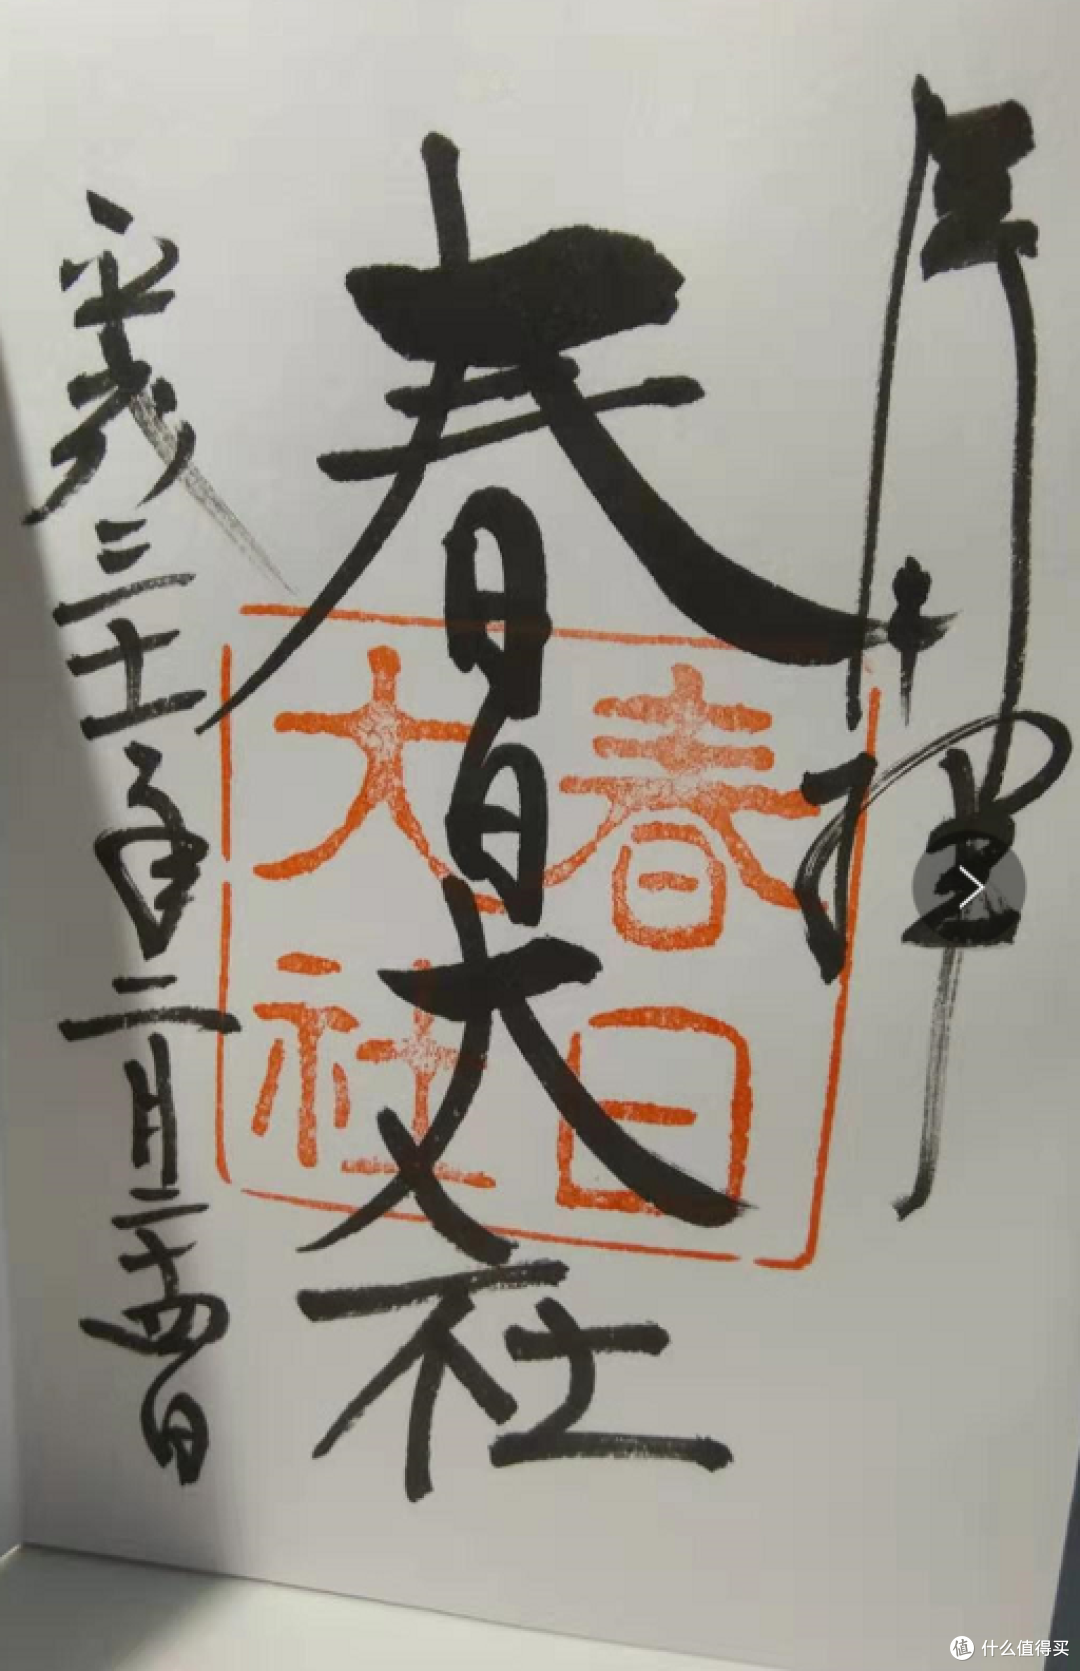 奉拝
春日大社
平成三十一年二月二十四日
春日
大社
值 什么值得买